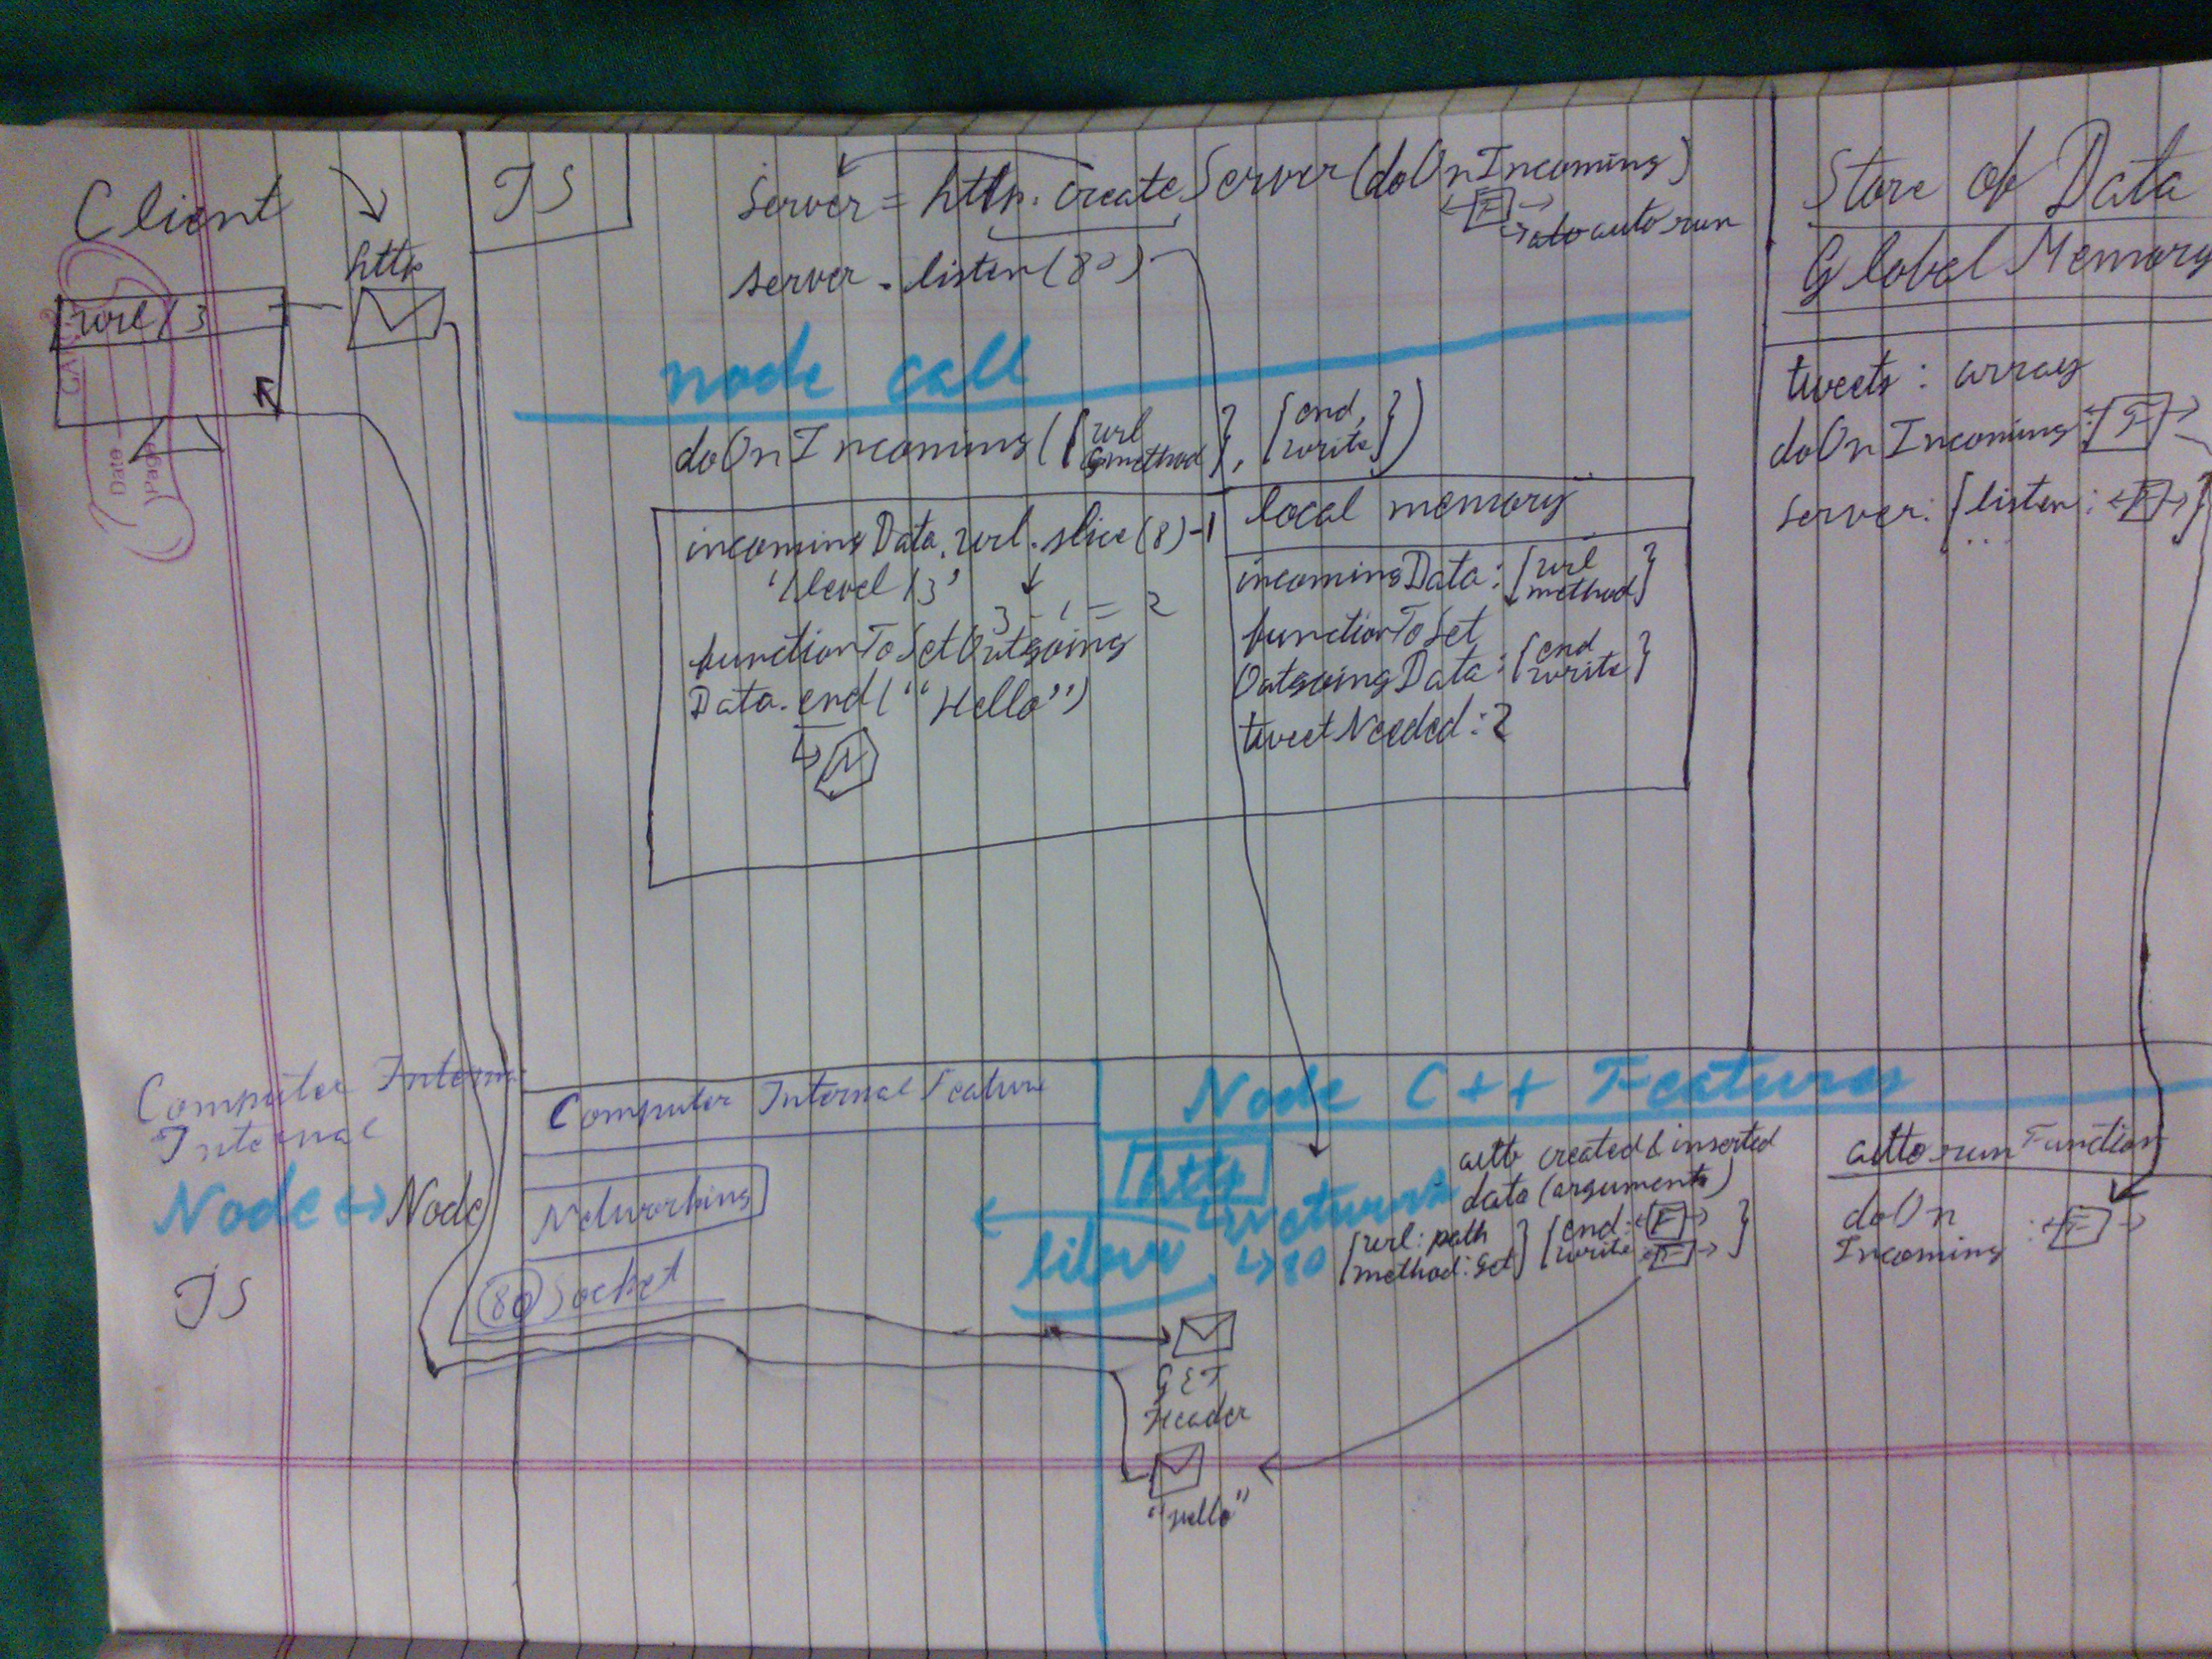 Client
http
url/3
JS
Server = http.createServer(doOnIncoming)
F
auto run
server.listen(80)
node call
doOnIncoming({url method}, {end, write})
incomingData.url.slice(8)-1
'/level/3'
3-1=2
functionToSetOutgoing
Data.end(“Hello”)
N
local memory
incomingData: {url method}
functionToSet
OutgoingData: {end write}
tweetNeeded: 2
Store of Data
Global Memory
tweets: array
doOnIncoming: F
server: {listen: F}
...
Computer Intern
Internal
Node ↔ Node
JS
Computer Internal Feature
Networking
80 Socket
Node C++ Features
http
Network
80
libuv
auto created & inserted
data (arguments)
{url: path
method: Get}
{end: F
write F}
auto run Function
doOn
Incoming : F
GET
Header
“Hello”
GANGA
Page
Date